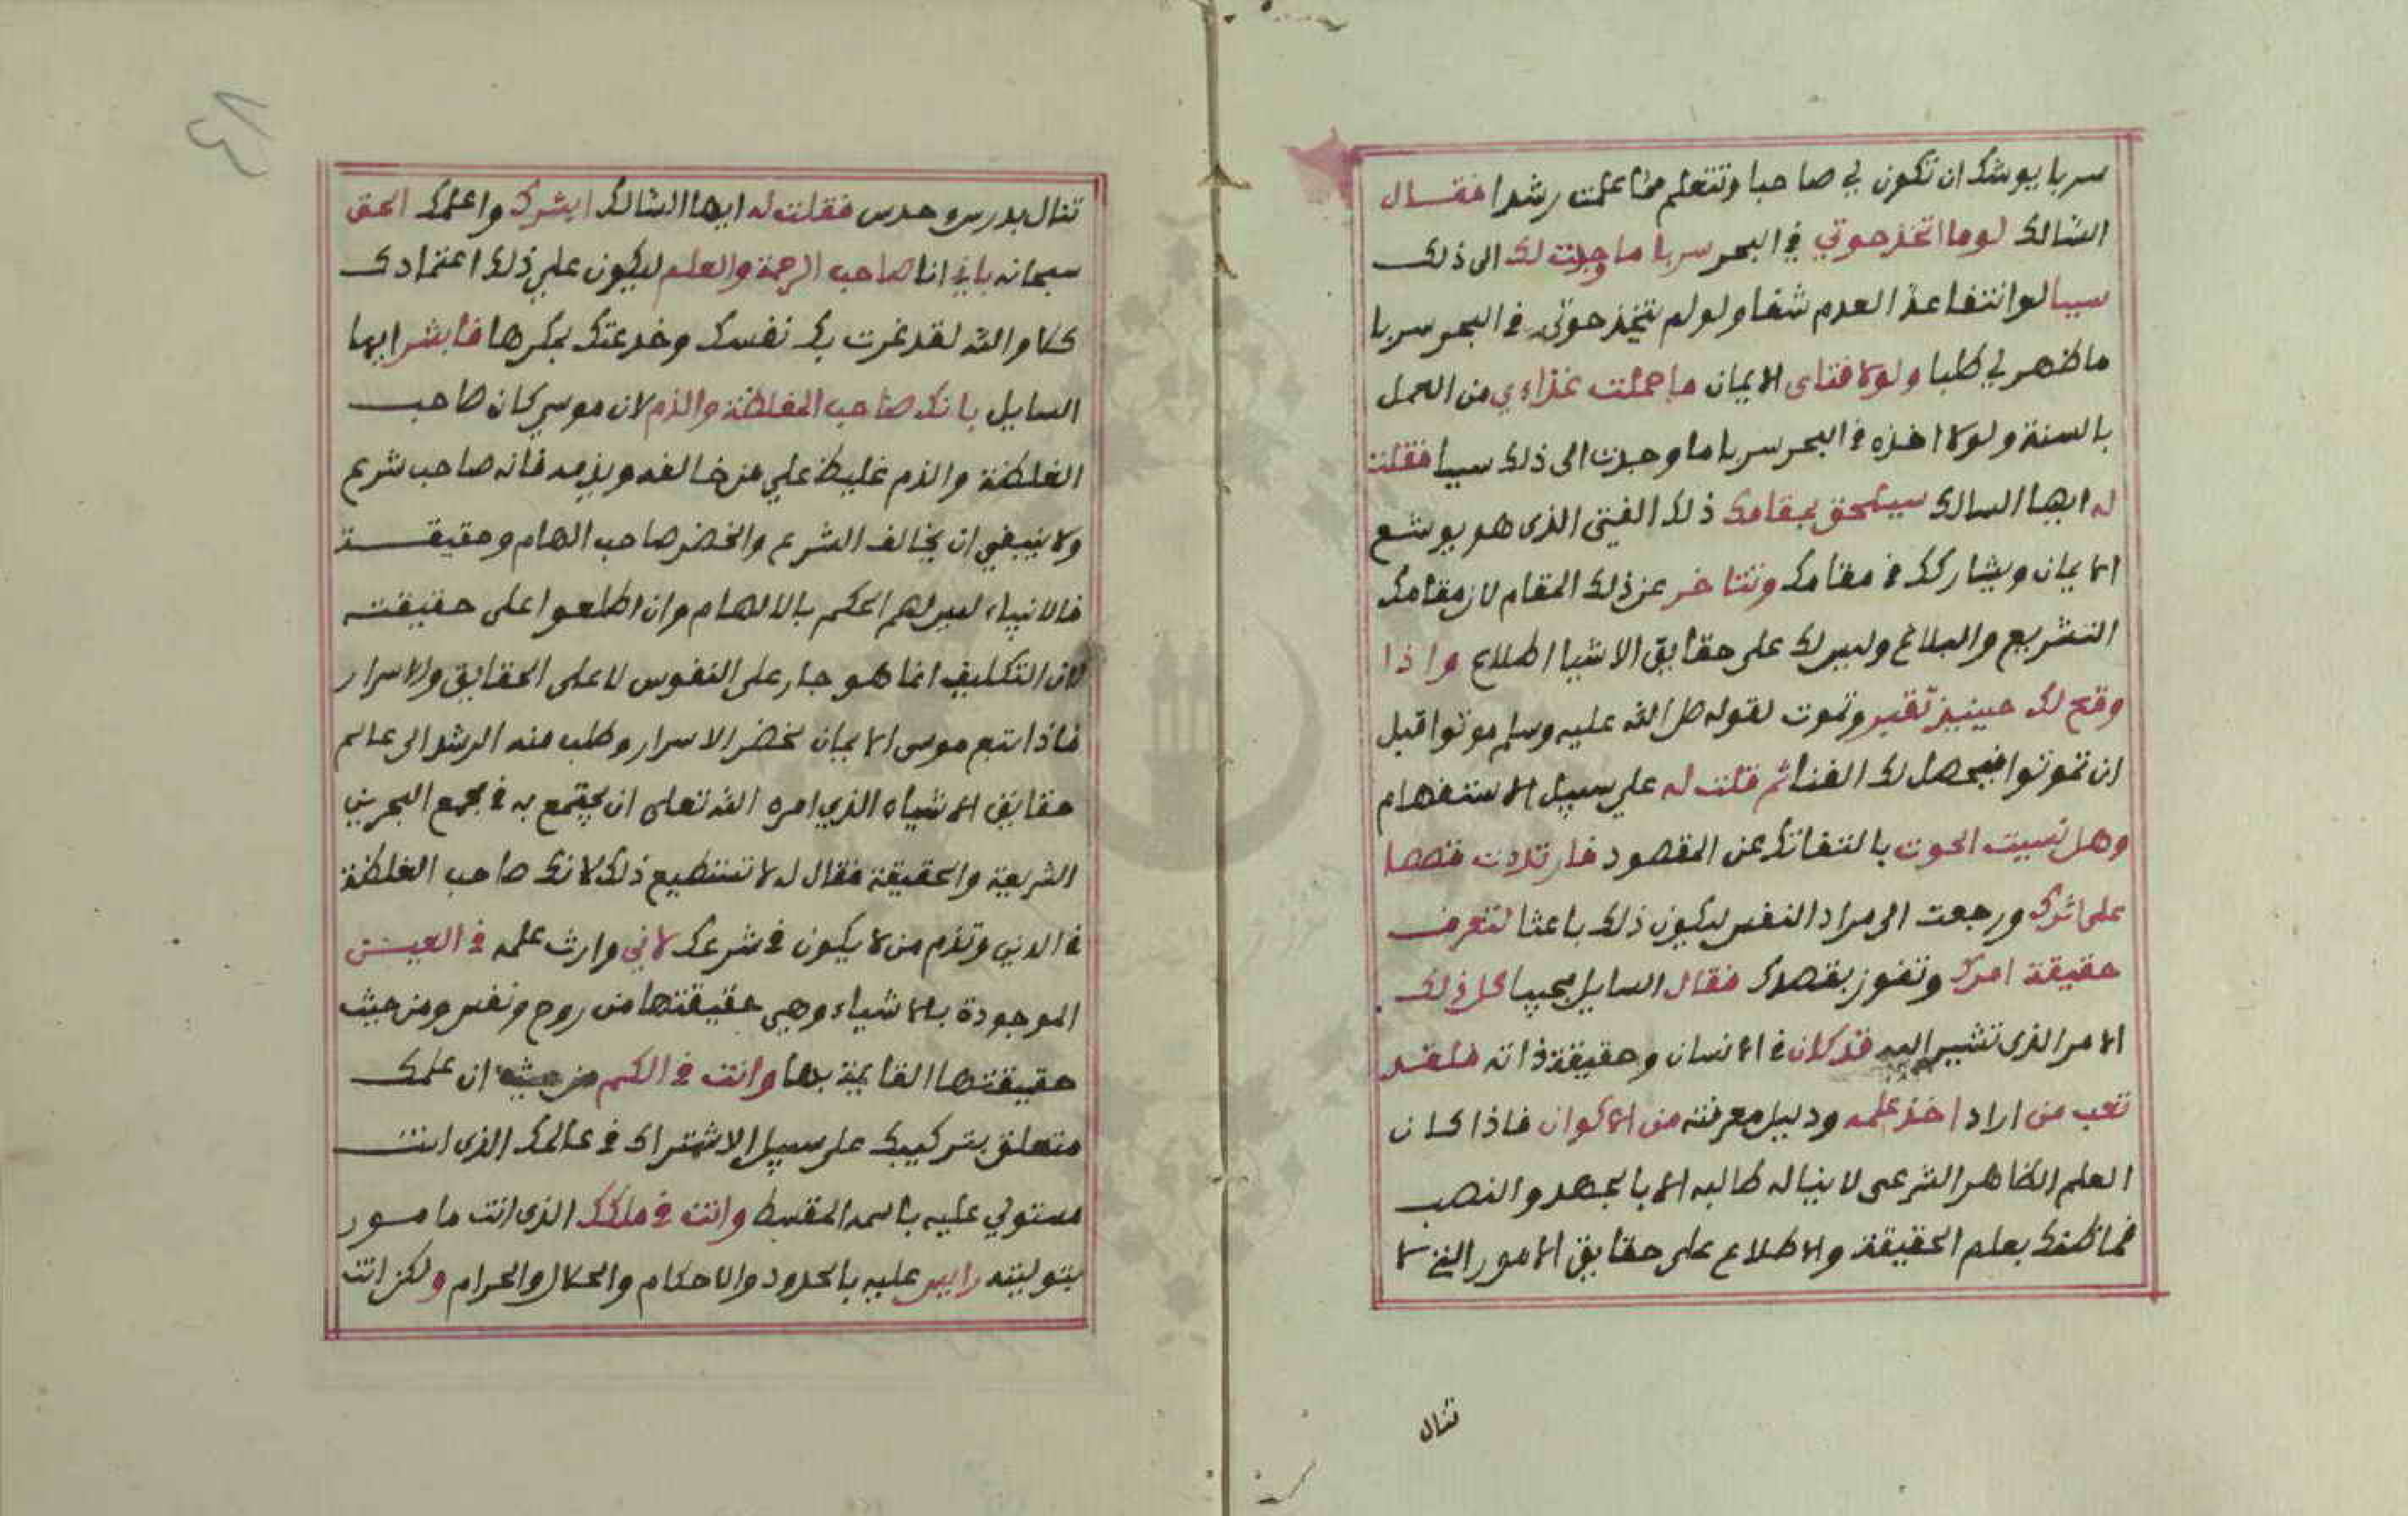 سربا يوشك ان تكون لي صاحبا وتتعلم مما علمت رشدا فقال
السالك لوما اتخذ حوتي في البحر سربا ما وجدت لك الى ذلك
سببا لو انتفا عذ العدم شفا ولو لم يتخذ حوتى في البحر سربا
ما ظهر لي طلبا ولولا فتاى الايمان ما حملت غذاءي من العمل
بالسنة ولولا اخذه في البحر سربا ما وجدت الى ذلك سببا فقلت
له ايها السالك سيلحق بمقامك ذلك الفيتى الذى هو يوشع
الايمان ويشاركك في مقامك وتتاخر عن ذلك المقام لان مقامك
التشريع والبلاغ وليس لك على حقايق الاشيا اطلاع واذا
وقع لك حينيذ تقبر وتموت لقوله صلى الله عليه وسلم موتوا قبل
ان تموتوا فيحصل لك الفنا ثم قلت له علي سبيل الاستفهام
وهل نسيت الحوت بالتفاتك عن المقصود فارتدت قصصا
على اثرك ورجعت الى مراد النفس ليكون ذلك باعثا لتعرف
حقيقة امرك وتفوز بقصدك فقال السايل مجيبا كل ذلك
الامر الذى تشير اليه قد كان في الانسان وحقيقة ذاته فلقد
تعب من اراد اخذ علمه ودليل معرفته من الاكوان فاذا كان
العلم الظاهر الشرعى لا يناله طالبه الا بالجهد والنصب
فما ظنك بعلم الحقيقة والاطلاع على حقايق الامور التي لا
تنال
تنال بدرس وحدس فقلت له ايها السالك ابشرك واعلمك الحق
سبحانه باني انا صاحب الرحمة والعلم ليكون علي ذلك اعتمادك
كلا والله لقد غرت بك نفسك وخدعتك بمكرها فابشر ايها
السايل بانك صاحب الغلظة والذم لان موسي كان صاحب
الغلظة والذم غليظ علي من خالفه ويذمه فانه صاحب شرع
ولا ينبغي ان يخالف الشرع والخضر صاحب الهام وحقيقة
فالانبياء ليس لهم الحكم بالالهام وان اطلعوا على حقيقته
لان التكليف انما هو جار على النفوس لا على الحقايق والاسرار
فاذا تبع موسى الايمان لخضر الاسرار وطلب منه الرشد الى عالم
حقايق الاشياء الذي امره الله تعلى ان يجتمع به في مجمع البحرين
الشريعة والحقيقة فقال له لا تستطيع ذلك لانك صاحب الغلظة
في الدين وتذم من لا يكون في شرعك لاني وارث علمه في العين
الموجودة بالاشياء وهي حقيقتها من روح ونفس ومن حيث
حقيقتها القايمة بها وانت في الكم من حيث ان علمك
متعلق بتركيبك على سبيل الاشتراك في عالمك الذى انت
مستولي عليه باسمه المقسط وانت في ملكك الذى انت مامور
بتوليته رايس عليه بالحدود والاحكام والحلال والحرام ولكن انت